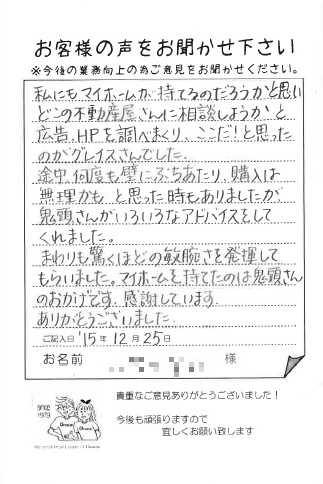 お客様の声をお聞かせ下さい
※今後の業務向上の為ご意見をお聞かせください。
私にもマイホームが持てるのだろうかと思い
どこの不動産屋さんに相談しようかと
広告、HPを調べまくり、ここだ!と思った
のがグレイスさんでした。
途中、何度も壁にぶちあたり、購入は
無理かも と思った時もありましたが
鬼頭さんがいろいろなアドバイスをして
くれました。
まわりも驚くほどの敏腕さを発揮して
もらいました。マイホームを持てたのは鬼頭さん
のおかげです。感謝しています。
ありがとうございました。
ご記入日 '15年 12月 25日
お名前 様
貴重なご意見ありがとうございました!
今後も頑張りますので
宜しくお願い致します
since
1979
Grace
Grace